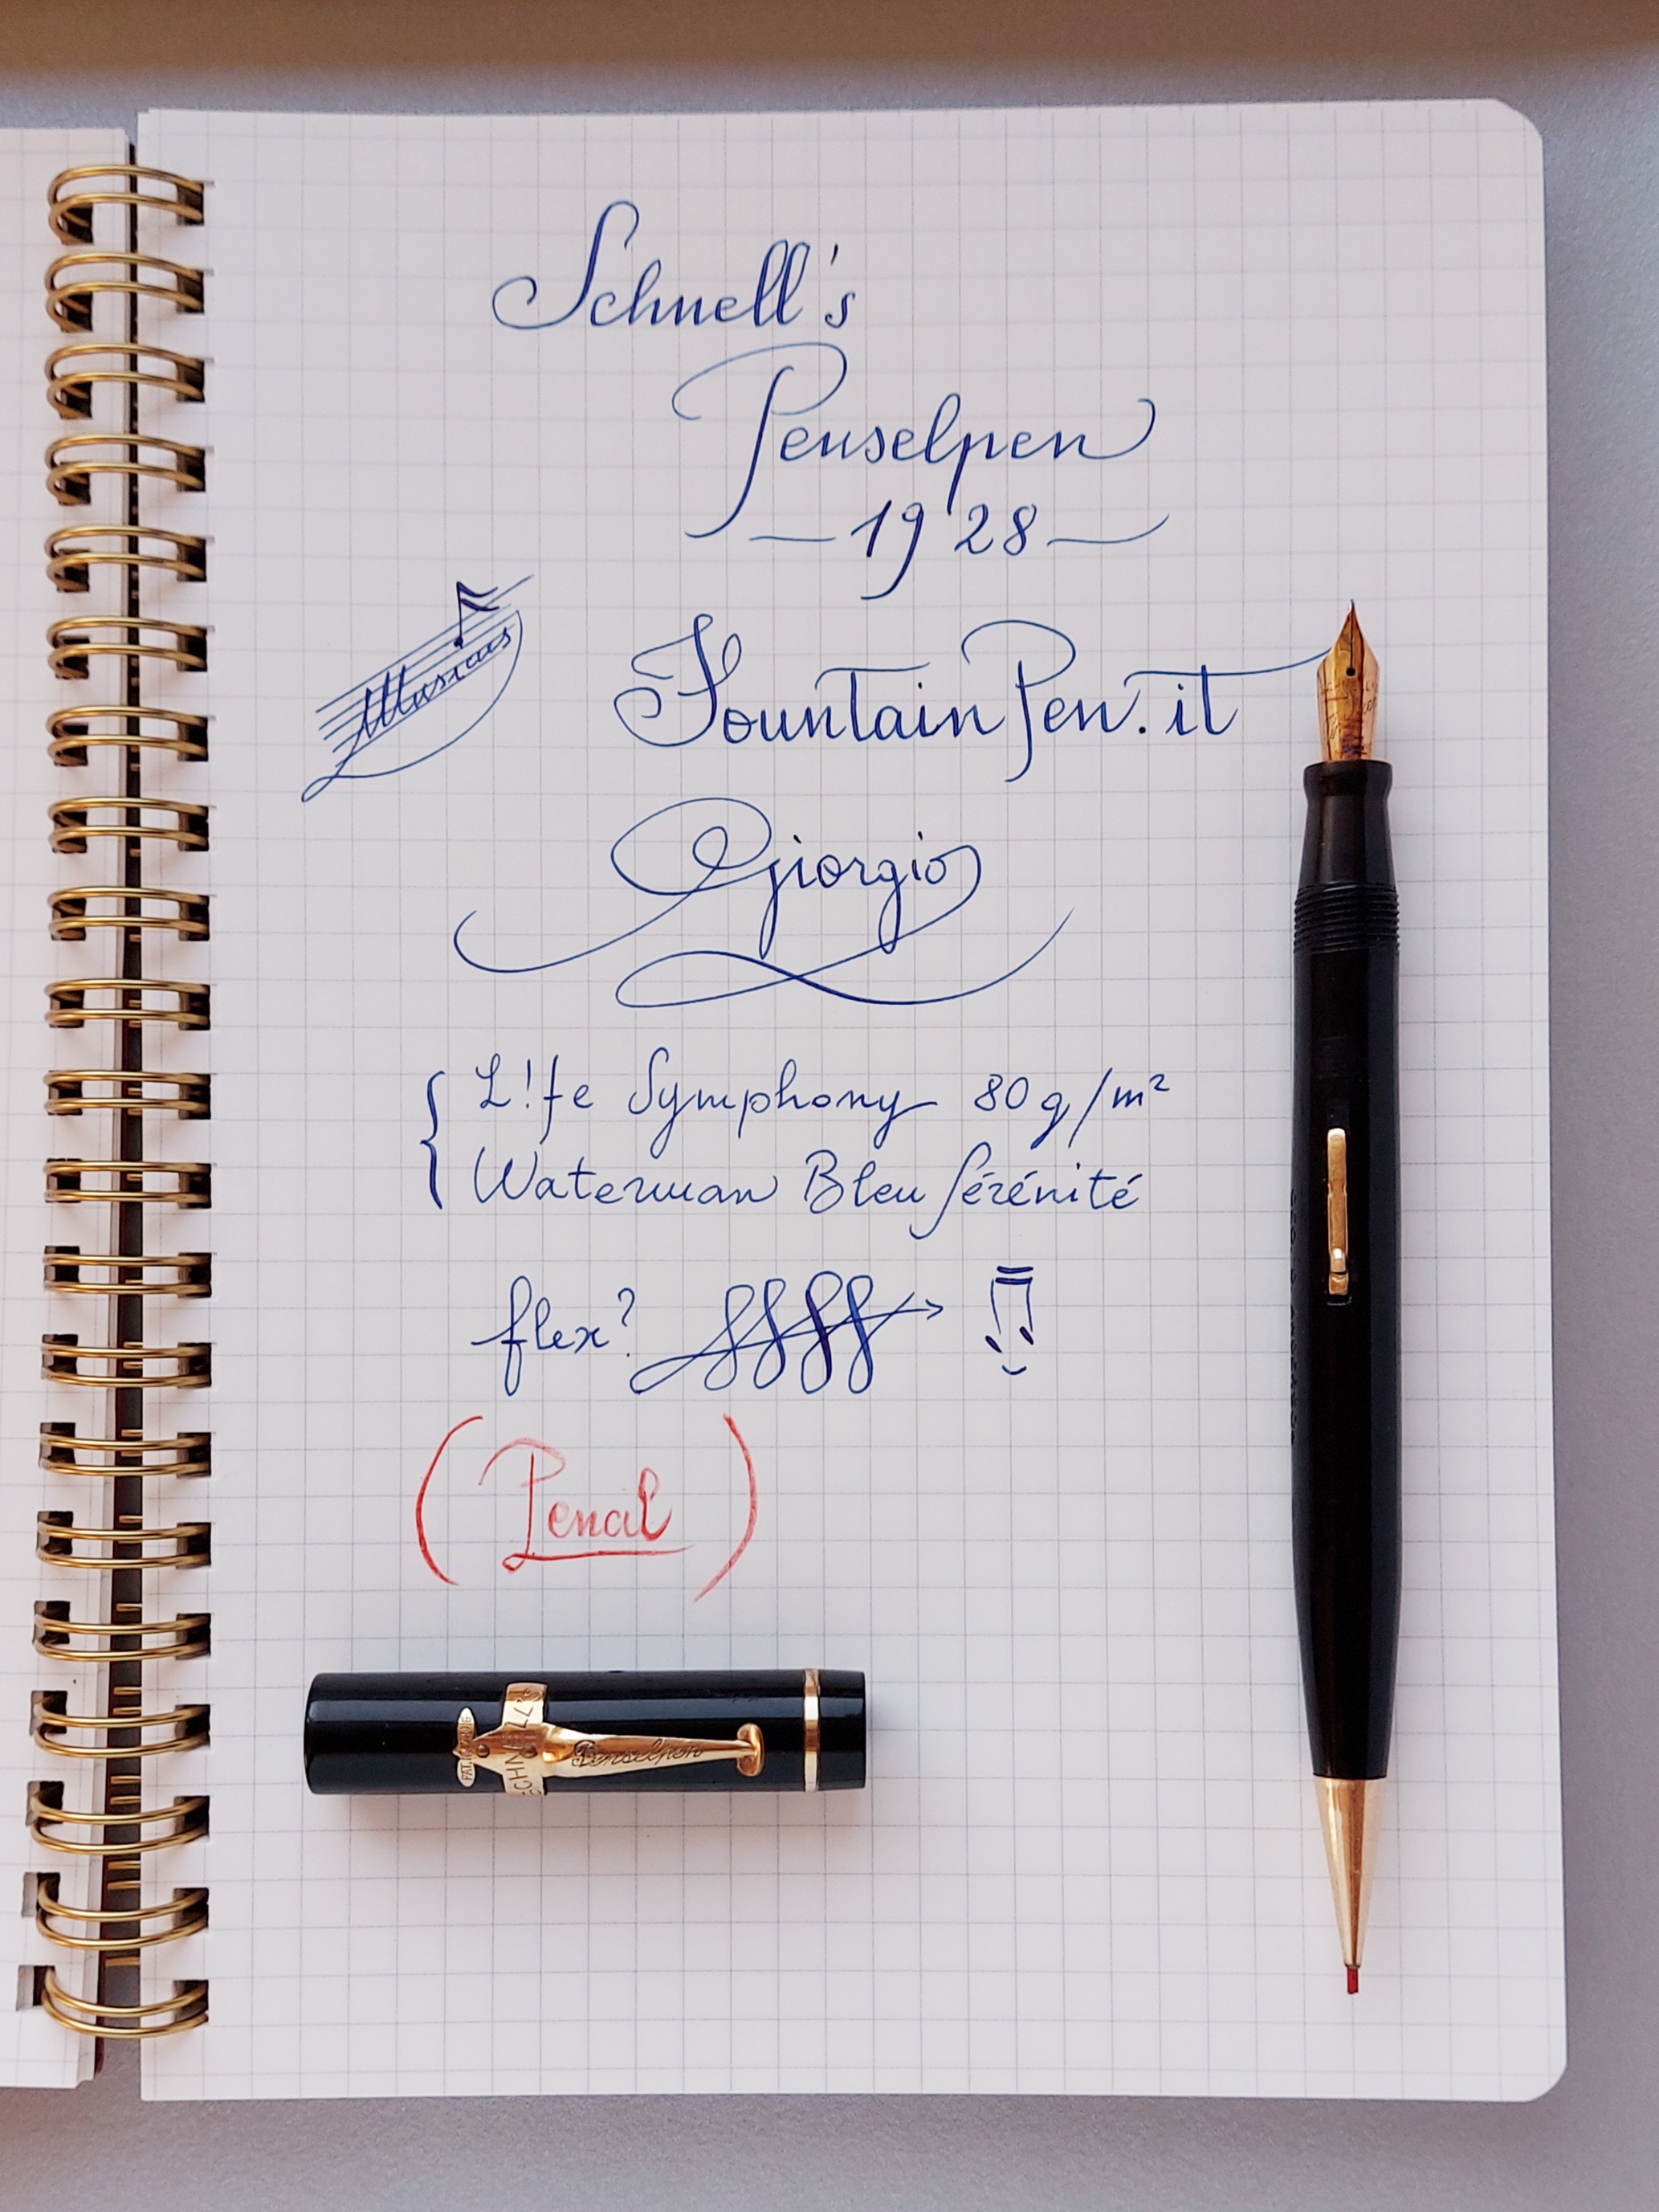 Schnell's
Penselpen
— 1928 —
Musicus
FountainPen.it
Giorgio
L!fe Symphony 80 g/m²
Waterman Bleu Sérénité
flex?
(Pencil)
SCHNELL'S
Penselpen